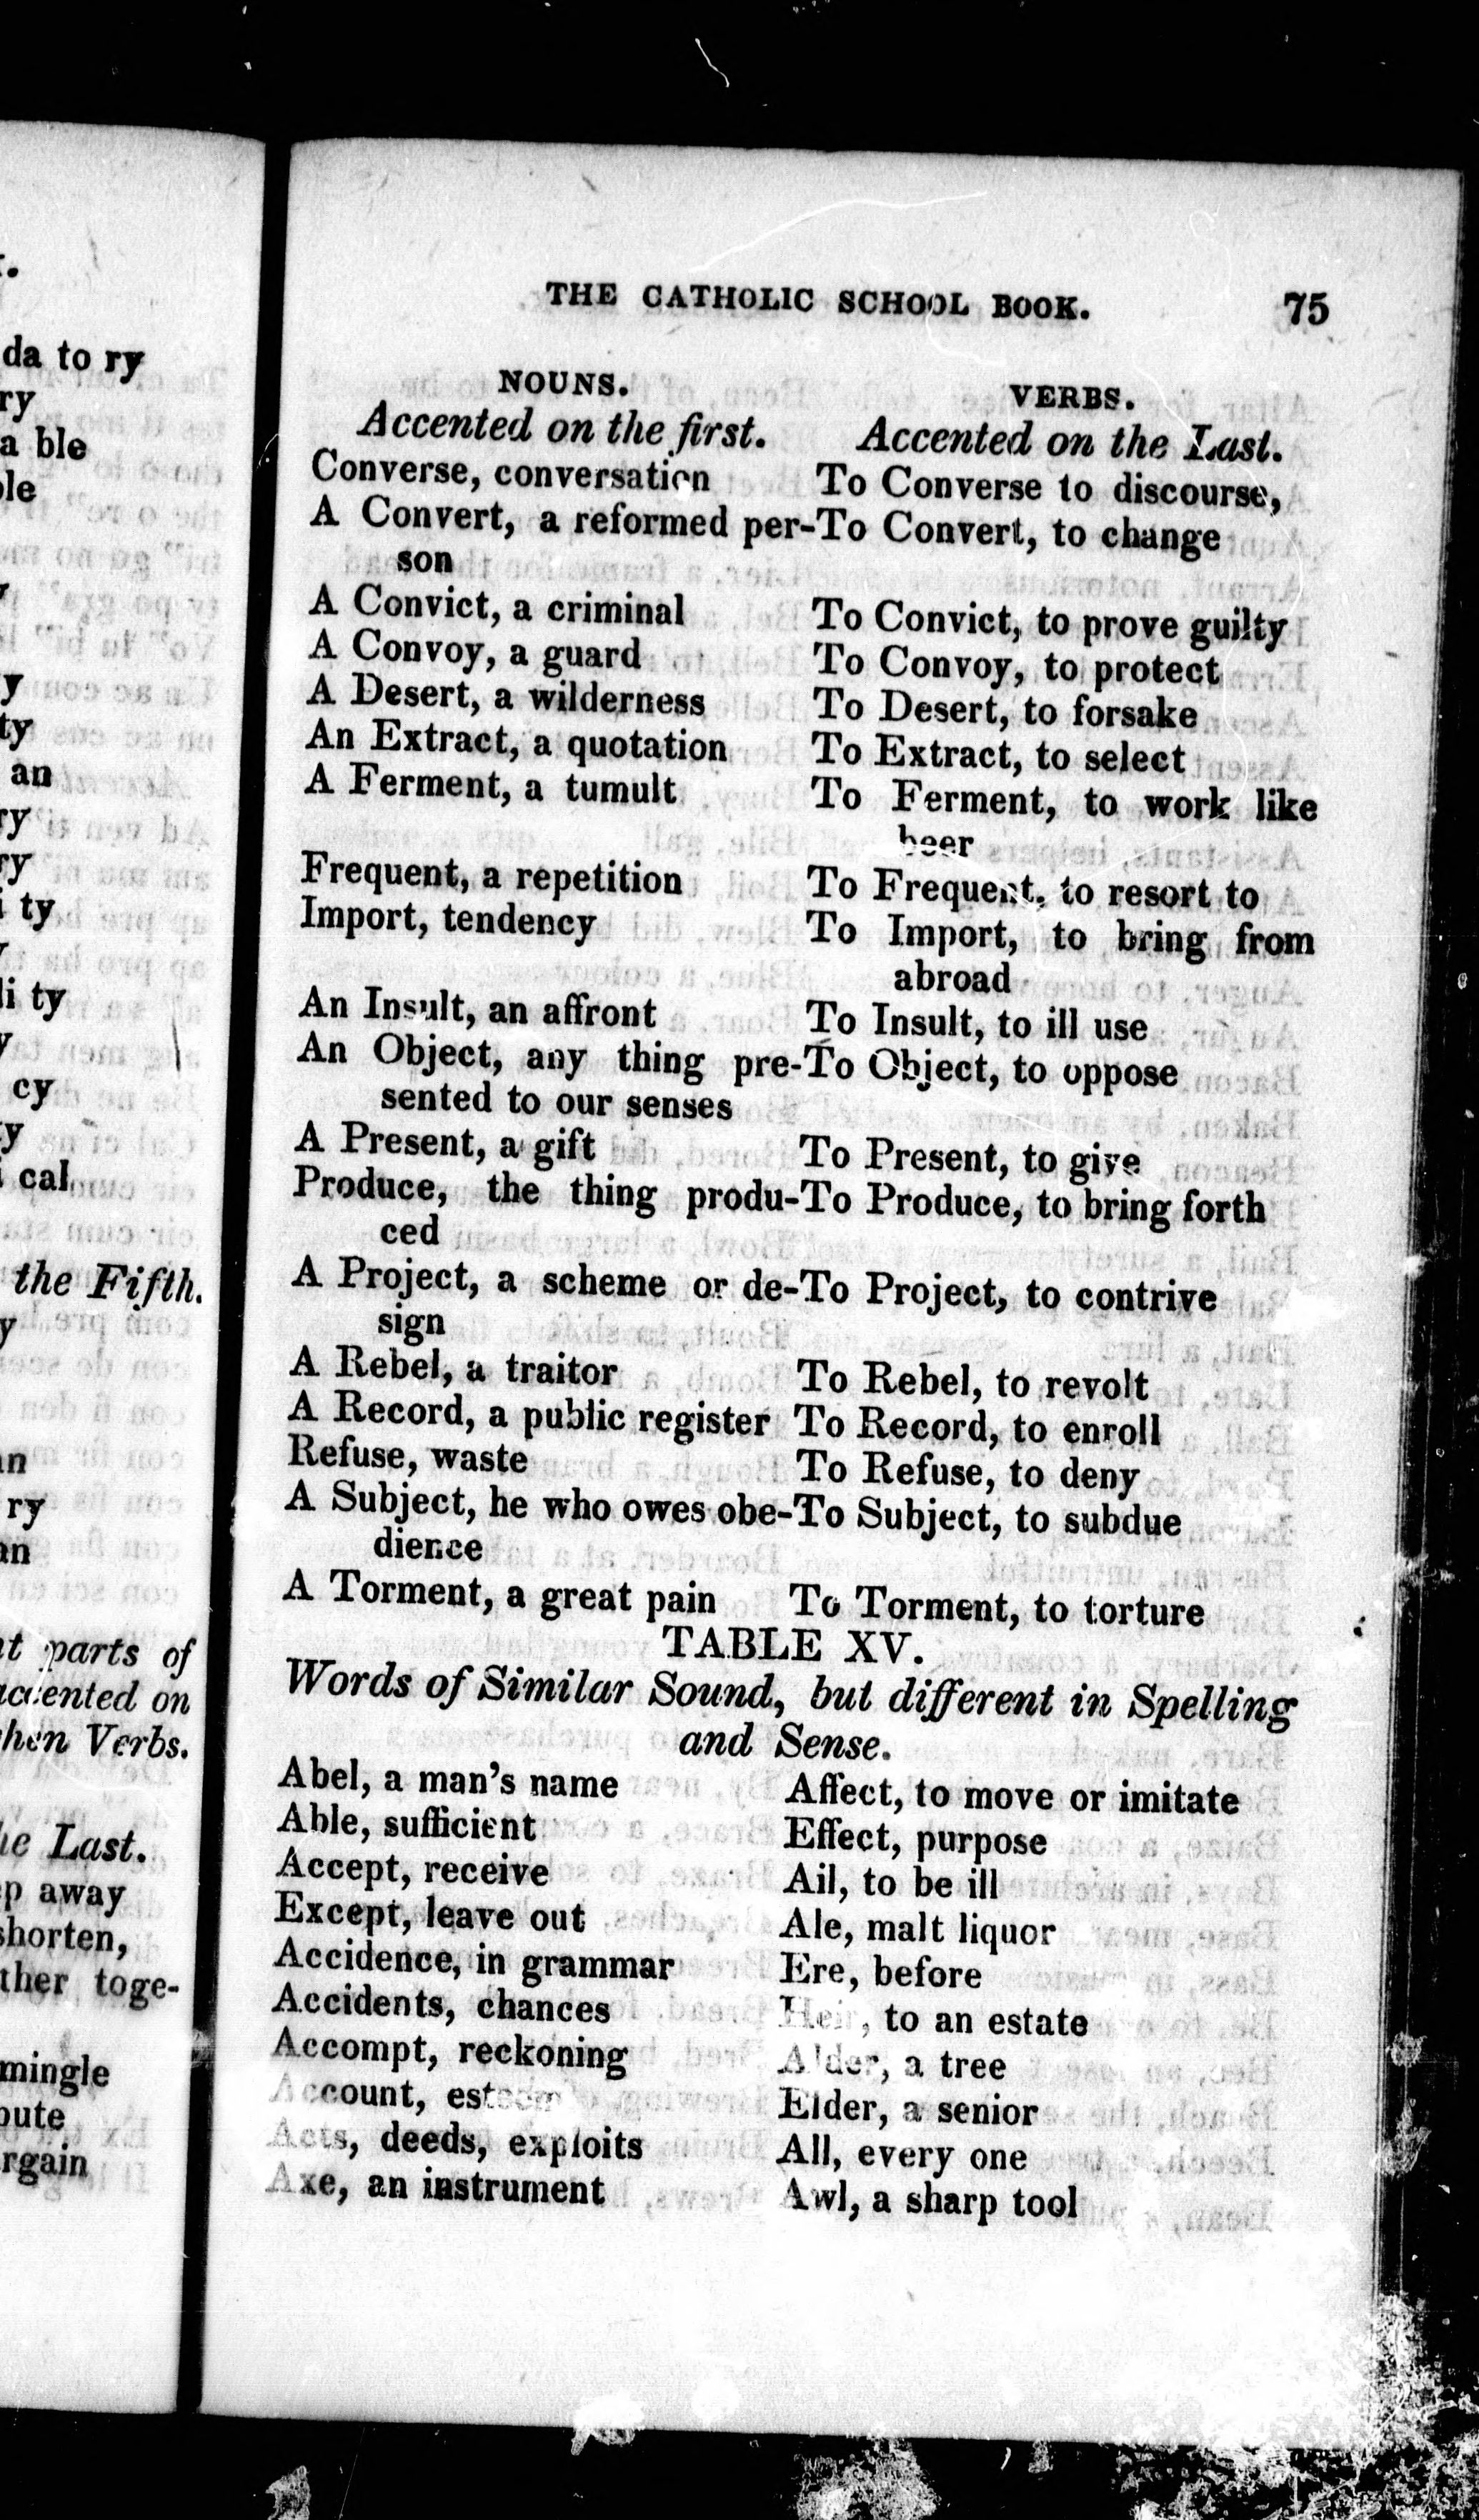 THE CATHOLIC SCHOOL BOOK. 75
NOUNS.
Accented on the first.
Converse, conversation
A Convert, a reformed per-
son
A Convict, a criminal
A Convoy, a guard
A Desert, a wilderness
An Extract, a quotation
A Ferment, a tumult
Frequent, a repetition
Import, tendency
An Insult, an affront
An Object, any thing pre-
sented to our senses
A Present, a gift
Produce, the thing produ-
ced
A Project, a scheme or de-
sign
A Rebel, a traitor
A Record, a public register
Refuse, waste
A Subject, he who owes obe-
dience
A Torment, a great pain
VERBS.
Accented on the Last.
To Converse to discourse,
To Convert, to change
To Convict, to prove guilty
To Convoy, to protect
To Desert, to forsake
To Extract, to select
To Ferment, to work like
beer
To Frequent, to resort to
To Import, to bring from
abroad
To Insult, to ill use
To Object, to oppose
To Present, to give
To Produce, to bring forth
To Project, to contrive
To Rebel, to revolt
To Record, to enroll
To Refuse, to deny
To Subject, to subdue
To Torment, to torture
TABLE XV.
Words of Similar Sound, but different in Spelling
and Sense.
Abel, a man's name
Able, sufficient
Accept, receive
Except, leave out
Accidence, in grammar
Accidents, chances
Accompt, reckoning
Account, esteem
Acts, deeds, exploits
Axe, an instrument
Affect, to move or imitate
Effect, purpose
Ail, to be ill
Ale, malt liquor
Ere, before
Heir, to an estate
Alder, a tree
Elder, a senior
All, every one
Awl, a sharp tool
da to ry
ry
a ble
ty
an
ry
i ty
li ty
cy
cal
the Fifth.
ry
parts of
accented on
Verbs.
Last.
away
shorten,
ther toge-
mingle